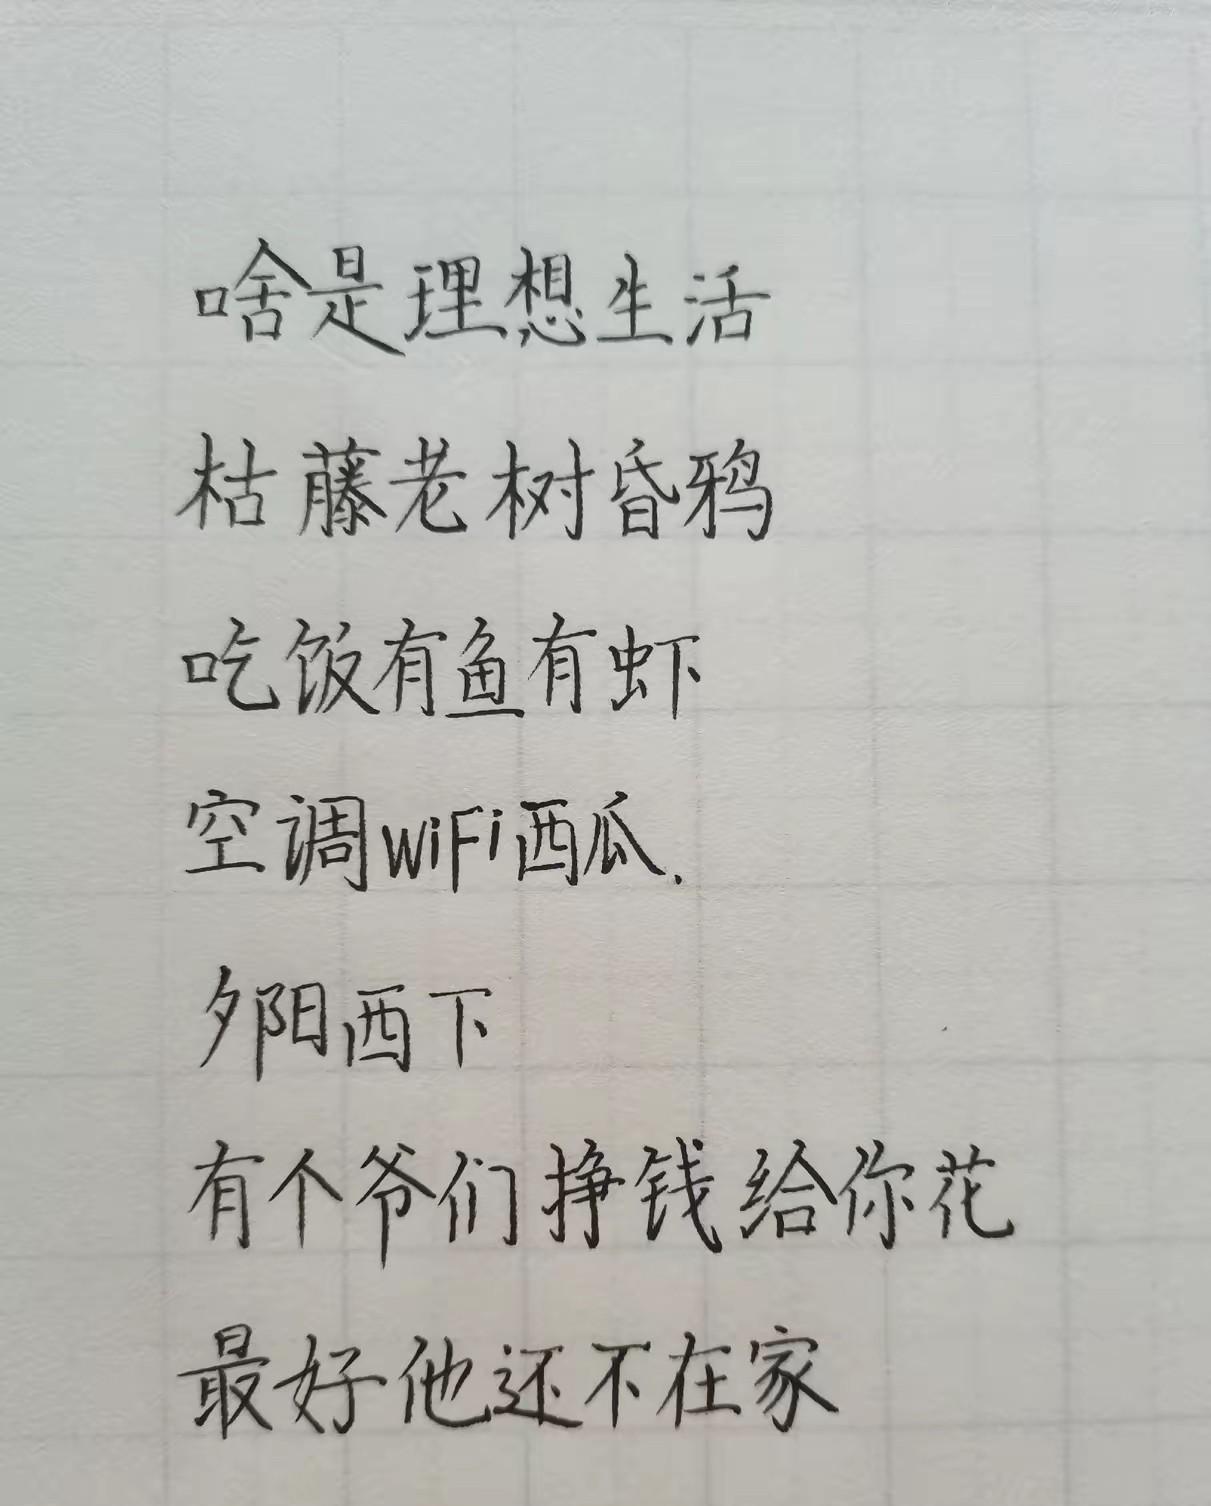 啥是理想生活
枯藤老树昏鸦
吃饭有鱼有虾
空调WiFi西瓜.
夕阳西下
有个爷们挣钱给你花
最好他还不在家